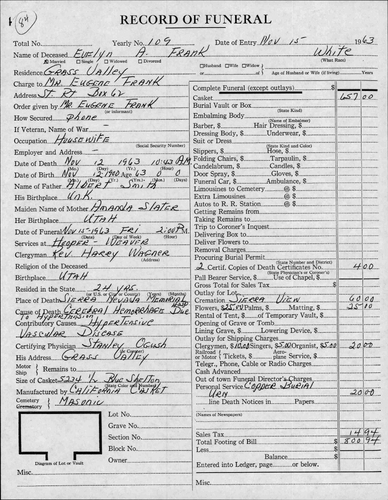 84
RECORD OF FUNERAL
Total No. Yearly No. 109 Date of Entry Nov 15 1963
Name of Deceased Evelyn A. Frank White
Married Single Widowed Divorced Husband Wife Widow (What Race)
Residence Grass Valley Age of Husband or Wife (if living) Years
Charge to Mr. Eugene Frank
Address St. Rt. Box 62
Order given by Mr Eugene Frank
(or informant)
How Secured phone
If Veteran, Name of War
Occupation Housewife
(Social Security Number)
Employer and Address
Date of Death Nov 12 1963 10:43 A.M.
Date of Birth Nov 12 1900 Age 63 0 0
Name of Father Albert Smith
His Birthplace Unk.
Maiden Name of Mother Amanda Slater
Her Birthplace Utah
Date of Funeral Nov 15-1963 Fri 2:00 P.M.
Services at Hooper-Weaver
Clergyman Rev. Harry Wagner
Religion of the Deceased
Birthplace Utah
Resided in the State 24 yrs.
Place of Death Sierra Nevada Memorial
Cause of Death Cerebral Hemorrhage Due
to Hypertension
Contributory Causes Hypertensive
Vascular Disease
Certifying Physician Stanley
His Address Grass Valley
Motor Ship Remains to
Size of Casket 5234 1/2 Blue Shelton
(State Color and Number)
Manufactured by California Casket
Cemetery Crematory Masonic
Lot No.
Grave No.
Section No.
Block No.
Owner
Diagram of Lot or Vault
Misc.
Complete Funeral (except outlays) $
Casket 657 00
Burial Vault or Box
(State Kind)
Embalming Body
(Name of Embalmer)
Barber, $ Hair Dressing, $
Dressing Body, $ Underwear, $
Suit or Dress
(State Kind and Color)
Slippers, $ Hose, $
Folding Chairs, $ Tarpaulin, $
Candelabrum, $ Candles, $
Door Spray, $ Gloves, $
Funeral Car, $ Ambulance, $
Limousines to Cemetery @ $
Extra Limousines @ $
Autos to R. R. Station @ $
Getting Remains from
Taking Remains to
Trip to Coroner's Inquest
Delivering Box to
Deliver Flowers to
Removal Charges
Procuring Burial Permit
(State District and Number)
2 Certif. Copies of Death Certificates No. 4 00
(State Physician's or Coroner's)
Pull Bearer Service, $ Use of Chapel, $
Gross Total for Sales Tax $
Outlay for Lot
Cremation Sierra View 60 00
Flowers, $25.00 Palms, $ Matting, $ 25 10
Rental of Tent, $ of Temporary Vault, $
Opening of Grave or Tomb
Lining Grave, $ Lowering Device, $
Outlay for Shipping Charges
Clergymen, $10.00 Singers, $5.00 Organist, $5.00 20 00
Railroad or Motor Tickets, $ Aeroplane Service, $
Telegr., Phone, Cable or Radio Charges
Cash Advanced
Out of town Funeral Director's Charges
Personal Service Copper Burial
Urn 20 00
line Death Notices in Papers
(Names of Newspapers)
Sales Tax 14 94
Total Footing of Bill $ 800 94
Less $
Balance $
Entered into Ledger, page or below.
Misc.